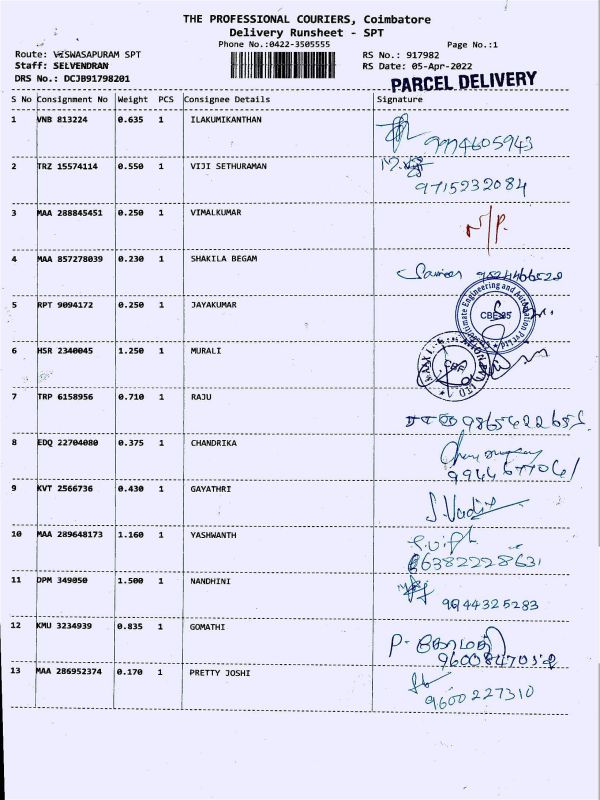 THE PROFESSIONAL COURIERS, Coimbatore
Delivery Runsheet - SPT
Phone No.:0422-3505555 Page No.:1
Route: VISWASAPURAM SPT RS No.: 917982
Staff: SELVENDRAN RS Date: 05-Apr-2022
DRS No.: DCJB91798201
PARCEL DELIVERY
S No Consignment No Weight PCS Consignee Details Signature
1 VNB 813224 0.635 1 ILAKUMIKANTHAN
2 TRZ 15574114 0.550 1 VIJI SETHURAMAN 9715232084
3 MAA 288845451 0.250 1 VIMALKUMAR N/P.
4 MAA 857278039 0.230 1 SHAKILA BEGAM
5 RPT 9094172 0.250 1 JAYAKUMAR
CBE-35
6 HSR 2340045 1.250 1 MURALI
7 TRP 6158956 0.710 1 RAJU
8 EDQ 22704080 0.375 1 CHANDRIKA
9 KVT 2566736 0.430 1 GAYATHRI
10 MAA 289648173 1.160 1 YASHWANTH
11 DPM 349050 1.500 1 NANDHINI 9944325283
12 KMU 3234939 0.835 1 GOMATHI P. கோமதி
13 MAA 286952374 0.170 1 PRETTY JOSHI 9600227310